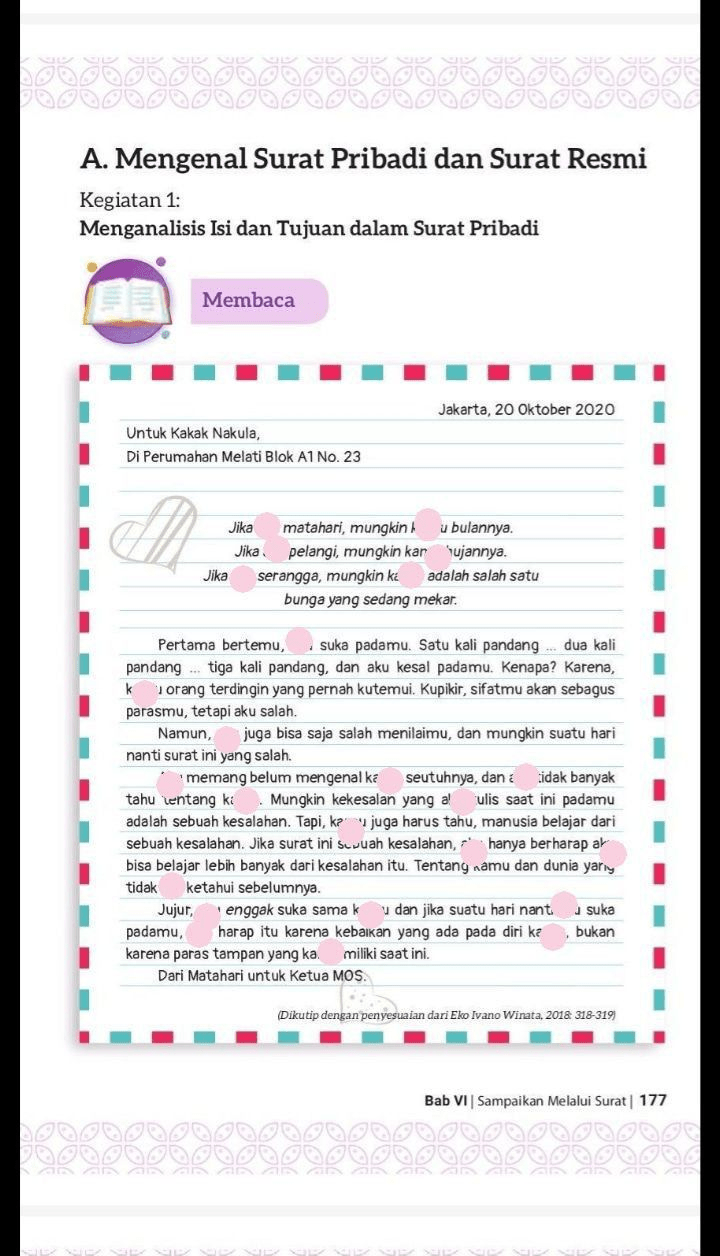 A. Mengenal Surat Pribadi dan Surat Resmi
Kegiatan 1:
Menganalisis Isi dan Tujuan dalam Surat Pribadi
Membaca
Jakarta, 20 Oktober 2020
Untuk Kakak Nakula,
Di Perumahan Melati Blok A1 No. 23
Jika matahari, mungkin bulannya.
Jika pelangi, mungkin hujannya.
Jika serangga, mungkin adalah salah satu
bunga yang sedang mekar.
Pertama bertemu, suka padamu. Satu kali pandang ... dua kali
pandang ... tiga kali pandang, dan aku kesal padamu. Kenapa? Karena,
orang terdingin yang pernah kutemui. Kupikir, sifatmu akan sebagus
parasmu, tetapi aku salah.
Namun, juga bisa saja salah menilaimu, dan mungkin suatu hari
nanti surat ini yang salah.
memang belum mengenal seutuhnya, dan tidak banyak
tahu tentang . Mungkin kekesalan yang saat ini padamu
adalah sebuah kesalahan. Tapi, juga harus tahu, manusia belajar dari
sebuah kesalahan. Jika surat ini sebuah kesalahan, hanya berharap
bisa belajar lebih banyak dari kesalahan itu. Tentang kamu dan dunia yang
tidak ketahui sebelumnya.
Jujur, enggak suka sama dan jika suatu hari suka
padamu, harap itu karena kebaikan yang ada pada diri , bukan
karena paras tampan yang miliki saat ini.
Dari Matahari untuk Ketua MOS.
(Dikutip dengan penyesuaian dari Eko Ivano Winata, 2018: 318-319)
Bab VI | Sampaikan Melalui Surat | 177